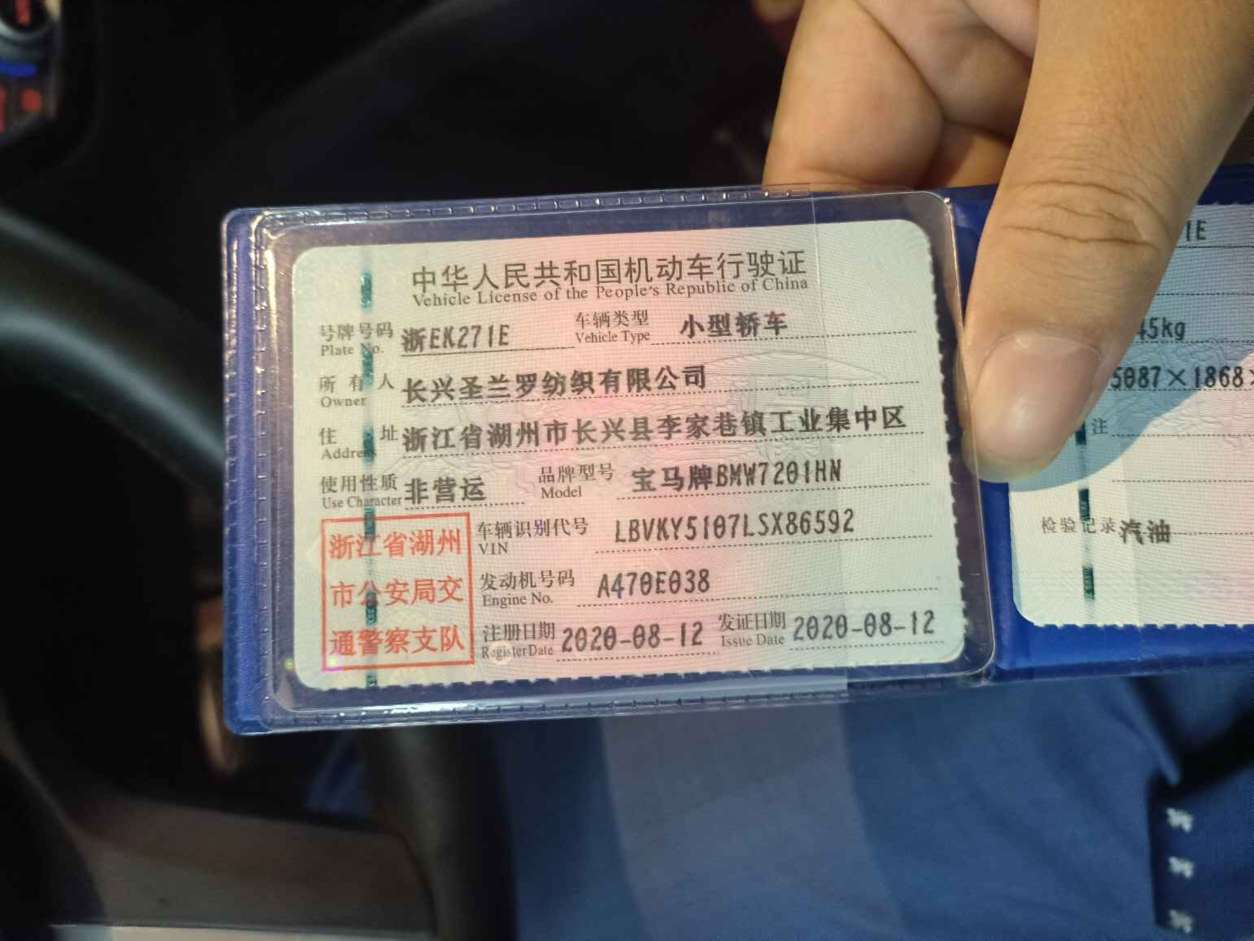 中华人民共和国机动车行驶证
Vehicle License of the People's Republic of China
号牌号码 浙EK271E 车辆类型 小型轿车
Plate No. Vehicle Type
所有人 长兴圣兰罗纺织有限公司
Owner
住址 浙江省湖州市长兴县李家巷镇工业集中区
Address
使用性质 非营运 品牌型号 宝马牌BMW7201HN
Use Character Model
浙江省湖州
市公安局交
通警察支队
车辆识别代号 LBVKY5107LSX86592
VIN
发动机号码 A470E038
Engine No.
注册日期 2020-08-12 发证日期 2020-08-12
Register Date Issue Date
1E
45kg
5087×1868×
注
检验记录 汽油